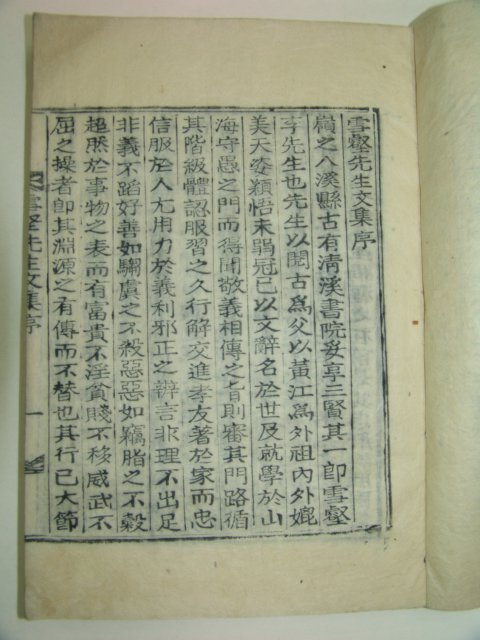 雪壑先生文集序
嶺之八溪縣古有淸溪書院妥享三賢其一卽雪壑
李先生也先生以閱古爲父以黃江爲外祖內外媲
美天姿穎悟未弱冠已以文辭名於世及就學於山
海守愚之門而得聞敬義相傳之旨則審其門路循
其階級體認服習之久行解交進孝友著於家而忠
信服於人尤用力於義利邪正之辨言非理不出足
非義不蹈好善如騶虞之不殺惡惡如竊脂之不穀
超然於事物之表而有富貴不淫貧賤不移威武不
屈之操者卽其淵源之有傳而不替也其行已大節
雪壑先生文集序
一